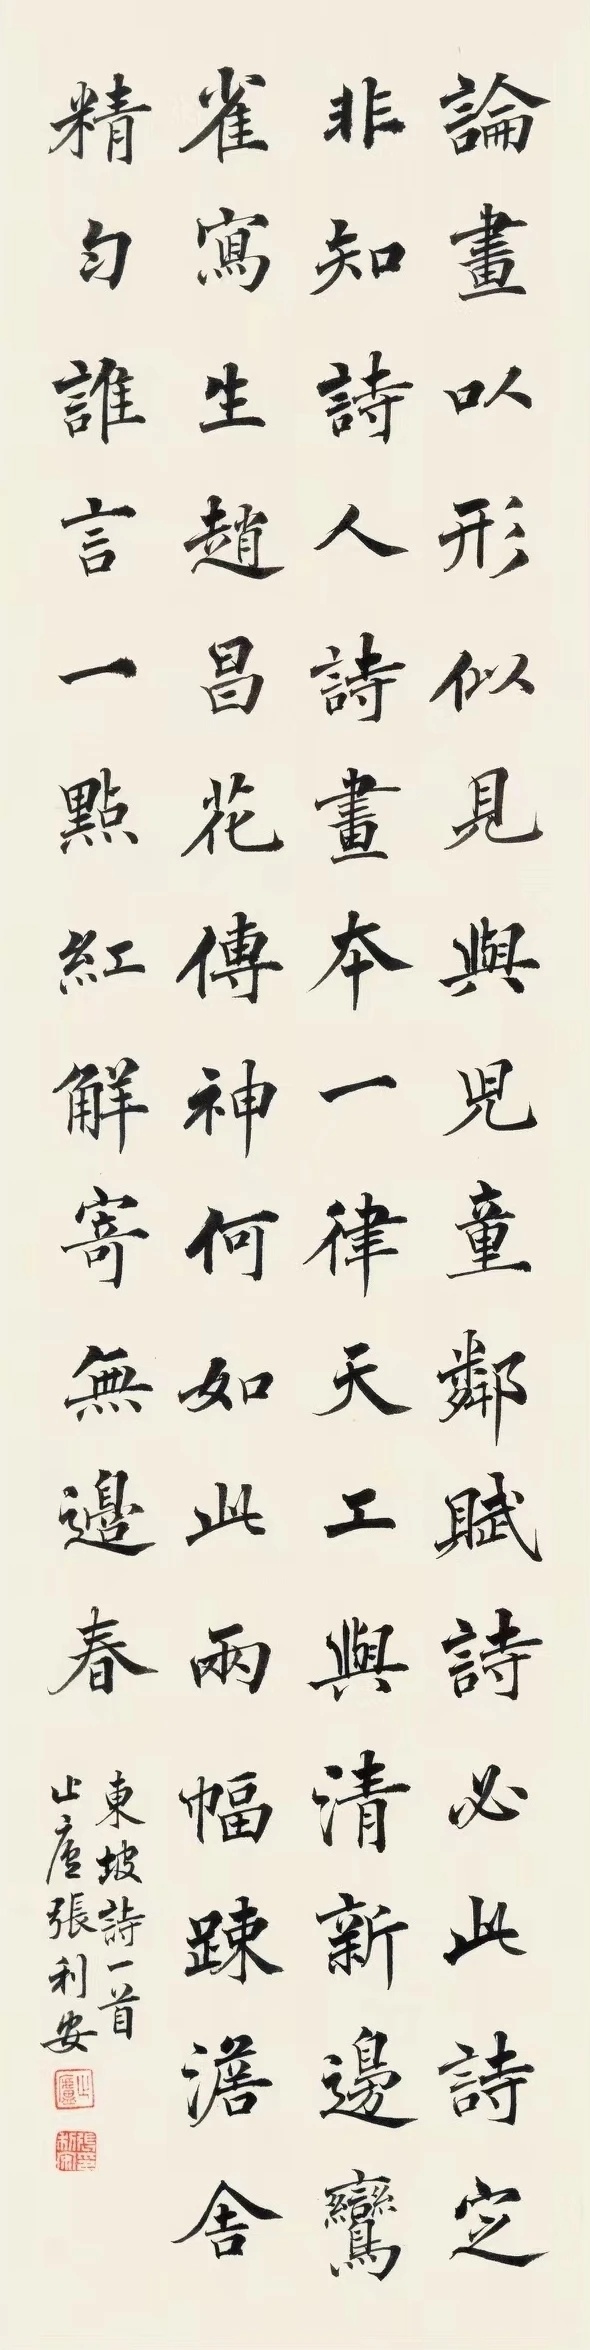 論畫以形似見與兒童鄰賦詩必此詩定
非知詩人詩畫本一律天工與清新邊鸞
雀寫生趙昌花傳神何如此兩幅踈澹含
精勻誰言一點紅解寄無邊春
東坡詩一首
止廬張利安